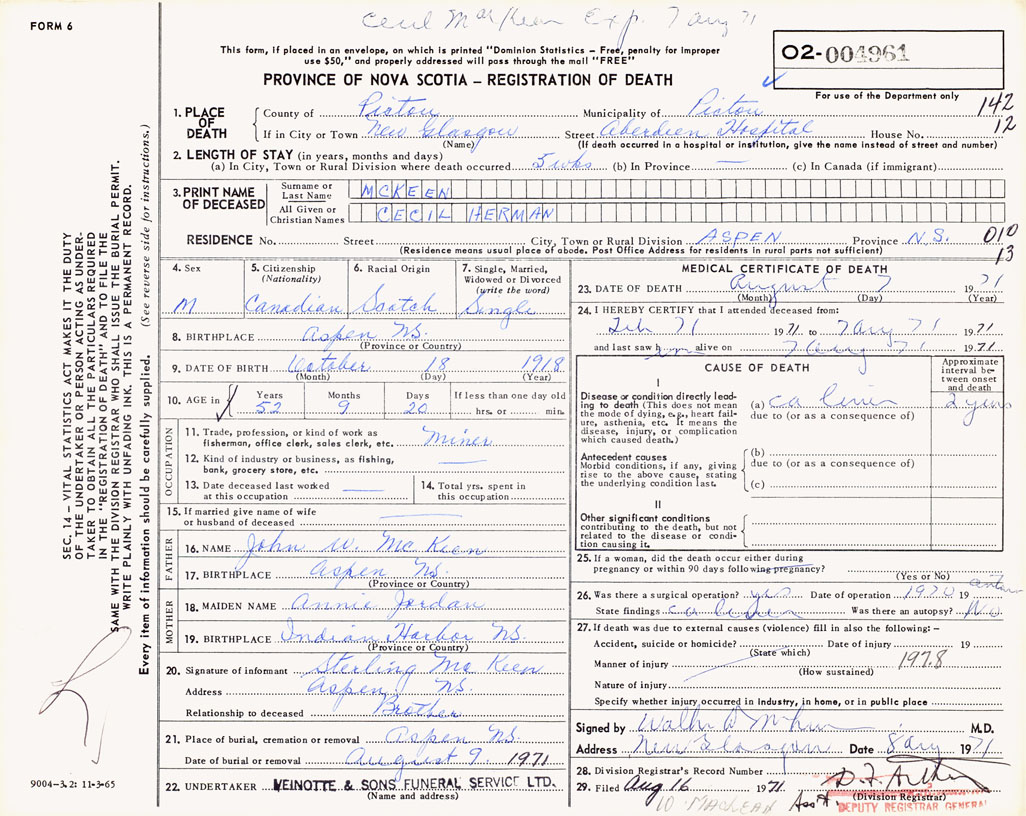 Cecil MacKeen Exp. 7 Aug 71
FORM 6
This form, if placed in an envelope, on which is printed "Dominion Statistics – Free, penalty for improper
use $50," and properly addressed will pass through the mail "FREE"
PROVINCE OF NOVA SCOTIA – REGISTRATION OF DEATH
02-004961
For use of the Department only
142
12
1. PLACE OF DEATH
County of Pictou Municipality of Pictou
If in City or Town New Glasgow Street Aberdeen Hospital House No.
(Name) (If death occurred in a hospital or institution, give the name instead of street and number)
2. LENGTH OF STAY (in years, months and days)
(a) In City, Town or Rural Division where death occurred 5 wks (b) In Province — (c) In Canada (if immigrant)
3. PRINT NAME OF DECEASED
Surname or Last Name MCKEEN
All Given or Christian Names CECIL HERMAN
RESIDENCE No. Street City, Town or Rural Division ASPEN Province N.S. 010
13
(Residence means usual place of abode. Post Office Address for residents in rural parts not sufficient)
4. Sex M
5. Citizenship (Nationality) Canadian
6. Racial Origin Scotch
7. Single, Married, Widowed or Divorced (write the word) Single
8. BIRTHPLACE Aspen NS.
(Province or Country)
9. DATE OF BIRTH October 18 1918
(Month) (Day) (Year)
10. AGE in Years 52 Months 9 Days 20 If less than one day old hrs. or min.
OCCUPATION
11. Trade, profession, or kind of work as fisherman, office clerk, sales clerk, etc. Miner
12. Kind of industry or business, as fishing, bank, grocery store, etc. —
13. Date deceased last worked at this occupation —
14. Total yrs. spent in this occupation
15. If married give name of wife or husband of deceased —
FATHER
16. NAME John W. McKeen
17. BIRTHPLACE Aspen NS.
(Province or Country)
MOTHER
18. MAIDEN NAME Annie Jordan
19. BIRTHPLACE Indian Harbor NS.
(Province or Country)
20. Signature of informant Sterling McKeen
Address Aspen NS.
Relationship to deceased Brother
21. Place of burial, cremation or removal Aspen NS.
Date of burial or removal August 9 1971
22. UNDERTAKER VEINOTTE & SONS FUNERAL SERVICE LTD.
(Name and address)
MEDICAL CERTIFICATE OF DEATH
23. DATE OF DEATH August 7 1971
(Month) (Day) (Year)
24. I HEREBY CERTIFY that I attended deceased from:
Feb 71 1971 to 7 Aug 71 1971
and last saw him alive on 7 Aug 71 1971
CAUSE OF DEATH
Approximate interval between onset and death
I
Disease or condition directly leading to death (This does not mean the mode of dying, e.g., heart failure, asthenia, etc. It means the disease, injury, or complication which caused death.)
(a) ca 2 years
due to (or as a consequence of)
Antecedent causes
Morbid conditions, if any, giving rise to the above cause, stating the underlying condition last.
(b)
due to (or as a consequence of)
(c)
II
Other significant conditions
contributing to the death, but not related to the disease or condition causing it.
25. If a woman, did the death occur either during
pregnancy or within 90 days following pregnancy?
(Yes or No)
26. Was there a surgical operation? yes Date of operation 1970 19
State findings ca Was there an autopsy? No
27. If death was due to external causes (violence) fill in also the following: –
Accident, suicide or homicide? Date of injury 19
(State which)
Manner of injury 197.8
(How sustained)
Nature of injury
Specify whether injury occurred in industry, in home, or in public place
Signed by M.D.
Address New Glasgow Date 8 Aug 1971
28. Division Registrar's Record Number
29. Filed Aug 16 1971
(Division Registrar)
Ass't. DEPUTY REGISTRAR GENERAL
SEC. 14 – VITAL STATISTICS ACT MAKES IT THE DUTY
OF THE UNDERTAKER OR PERSON ACTING AS UNDER-
TAKER TO OBTAIN ALL THE PARTICULARS REQUIRED
IN THE "REGISTRATION OF DEATH" AND TO FILE THE
SAME WITH THE DIVISION REGISTRAR WHO SHALL ISSUE THE BURIAL PERMIT.
WRITE PLAINLY WITH UNFADING INK. THIS IS A PERMANENT RECORD.
Every item of information should be carefully supplied. (See reverse side for instructions.)
9004–3.2: 11-3-65